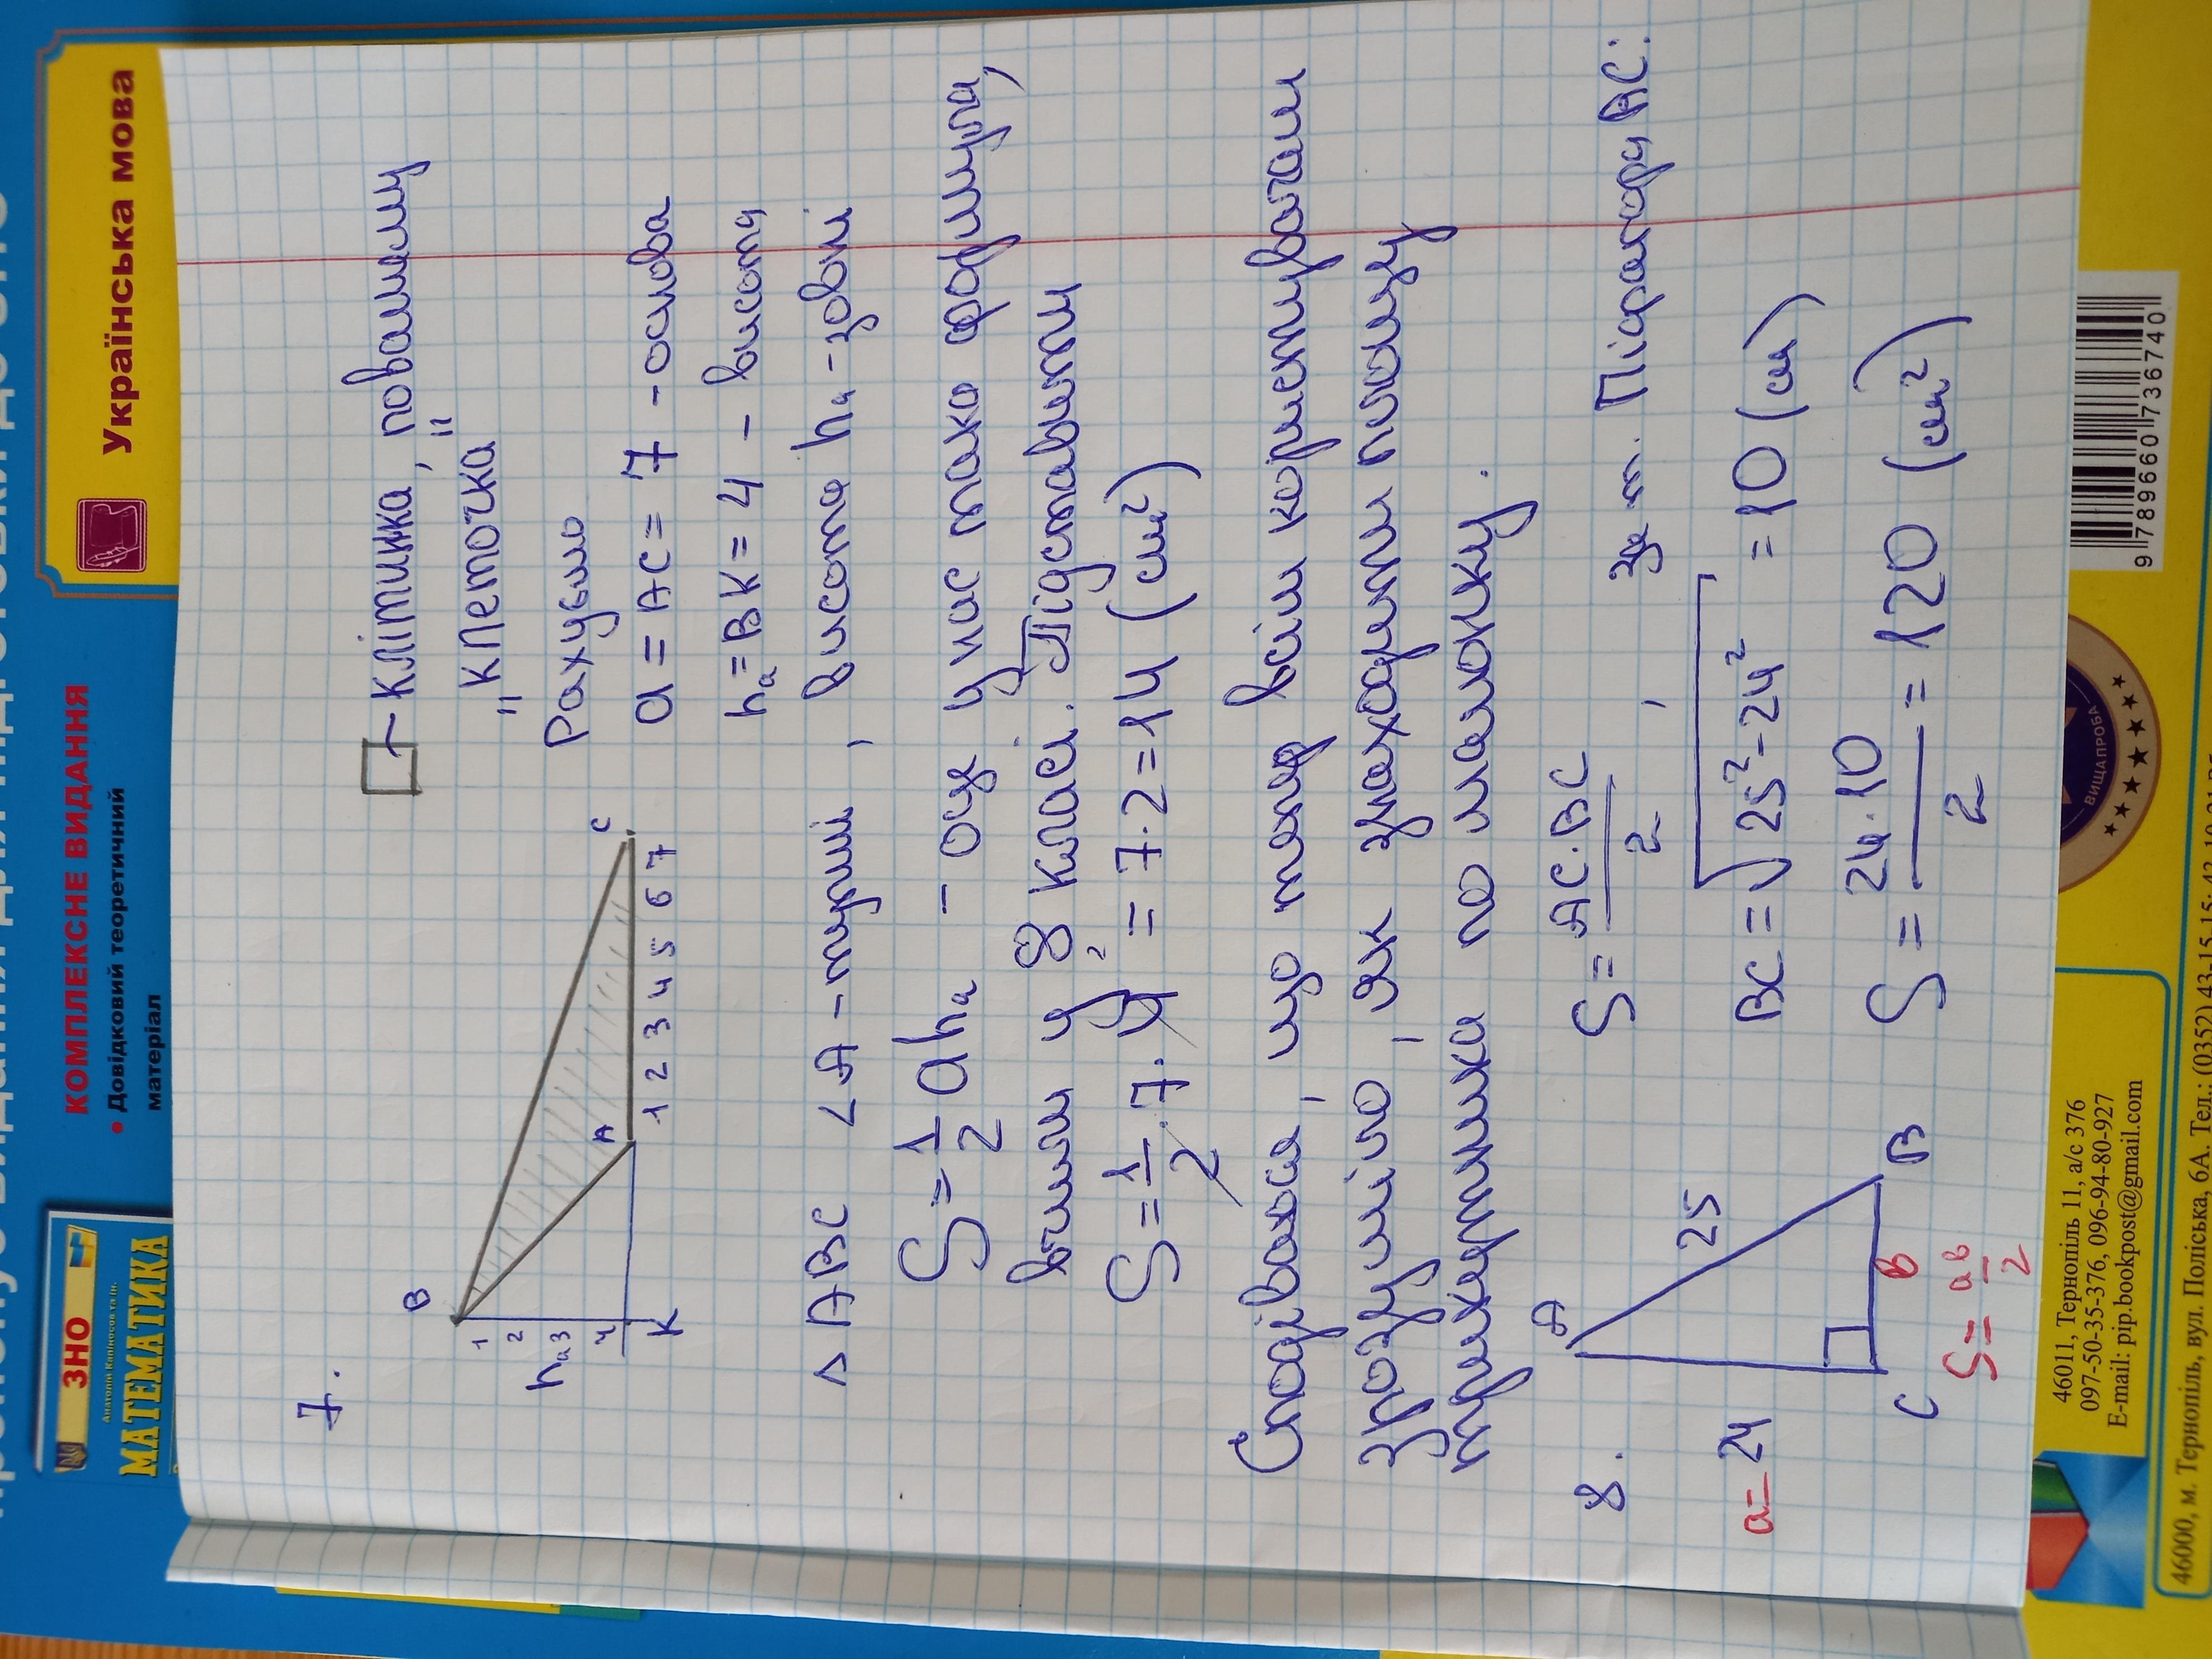 7.
B
1
2
hа 3
4
K
A
C
1 2 3 4 5 6 7
- клітинка, повашему
"клеточка"
Рахуємо
a = AC = 7 - основа
hа = BK = 4 - висота
△ ABC ∠A - тупий, висота hа - зовні
S = 1/2 ahа - оце у нас така формула,
вчили у 8 класі. Підставити
S = 1/2 · 7 · 4² = 7 · 2 = 14 (см²)
Сподіваюся, що тепер всім
зрозуміло, як знаходити площу
трикутника по малюнку.
8.
A
a = 24
25
C
B
в
S = ав/2
S = AC·BC/2, де т. Піфагора AC:
BC = √25²-24² = 10 (см)
S = 24·10/2 = 120 (см²)
ЗНО
МАТЕМАТИКА
КОМПЛЕКСНЕ ВИДАННЯ
• Довідковий теоретичний
матеріал
Українська мова
ВИЩА ПРОБА
46011, Тернопіль 11, а/с 376
097-50-35-376, 096-94-80-927
E-mail: pip.bookpost@gmail.com
9 789660 736740
46000, м. Тернопіль, вул. Поліська, 6А. Тел.: (0352) 43-15-15;